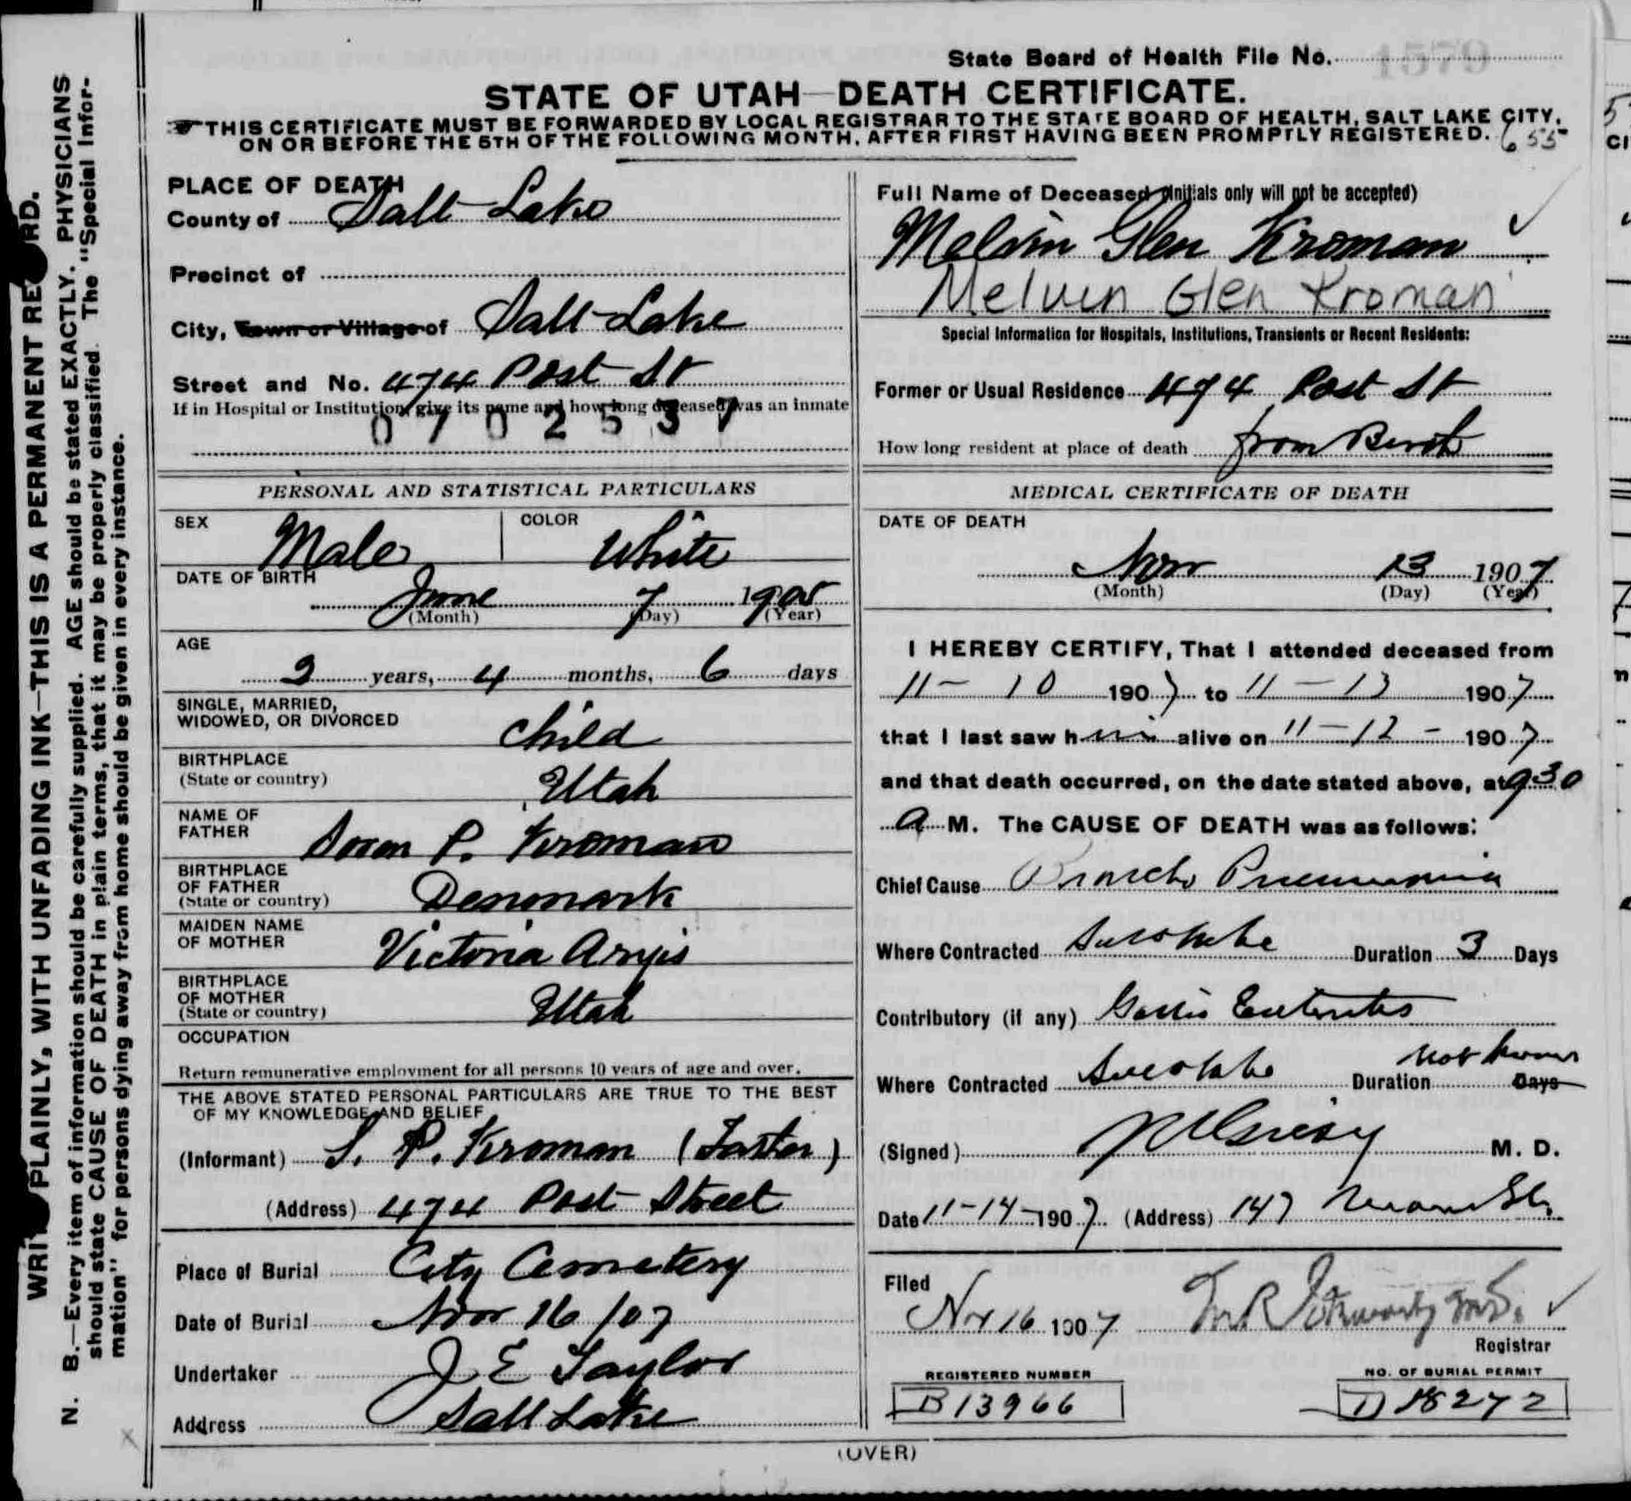 State Board of Health File No. 1579
STATE OF UTAH—DEATH CERTIFICATE.
THIS CERTIFICATE MUST BE FORWARDED BY LOCAL REGISTRAR TO THE STATE BOARD OF HEALTH, SALT LAKE CITY,
ON OR BEFORE THE 5TH OF THE FOLLOWING MONTH, AFTER FIRST HAVING BEEN PROMPTLY REGISTERED. 655
WRITE PLAINLY, WITH UNFADING INK—THIS IS A PERMANENT RECORD.
N. B.—Every item of information should be carefully supplied. AGE should be stated EXACTLY. PHYSICIANS
should state CAUSE OF DEATH in plain terms, that it may be properly classified. The "Special Infor-
mation" for persons dying away from home should be given in every instance.
PLACE OF DEATH
County of Salt Lake
Precinct of
City, Town or Village of Salt Lake
Street and No. 474 Post St
If in Hospital or Institution, give its name and how long deceased was an inmate
0702537
Full Name of Deceased (Initials only will not be accepted)
Melvin Glen Kroman
Melvin Glen Kroman
Special Information for Hospitals, Institutions, Transients or Recent Residents:
Former or Usual Residence 474 Post St
How long resident at place of death from Birth
PERSONAL AND STATISTICAL PARTICULARS
SEX Male COLOR White
DATE OF BIRTH
June 7 1905
(Month) (Day) (Year)
AGE
2 years, 4 months, 6 days
SINGLE, MARRIED,
WIDOWED, OR DIVORCED Child
BIRTHPLACE
(State or country) Utah
NAME OF
FATHER Soren P. Kroman
BIRTHPLACE
OF FATHER
(State or country) Denmark
MAIDEN NAME
OF MOTHER Victoria
BIRTHPLACE
OF MOTHER
(State or country) Utah
OCCUPATION
Return remunerative employment for all persons 10 years of age and over.
THE ABOVE STATED PERSONAL PARTICULARS ARE TRUE TO THE BEST
OF MY KNOWLEDGE AND BELIEF
(Informant) S. P. Kroman (Faster)
(Address) 474 Post Street
Place of Burial City Cemetery
Date of Burial Nov 16/07
Undertaker J E Taylor
Address Salt Lake
MEDICAL CERTIFICATE OF DEATH
DATE OF DEATH
Nov 13 1907
(Month) (Day) (Year)
I HEREBY CERTIFY, That I attended deceased from
11 - 10 1907 to 11 - 13 1907
that I last saw him alive on 11 - 12 - 1907
and that death occurred, on the date stated above, at 930
a M. The CAUSE OF DEATH was as follows:
Chief Cause Broncho Pneumonia
Where Contracted Duration 3 Days
Contributory (if any) Gastro Enteritis
Where Contracted Duration not known Days
(Signed) M. D.
Date 11-14-1907 (Address) 147
Filed
Nov 16 1907
Registrar
REGISTERED NUMBER
B 13966
NO. OF BURIAL PERMIT
D 18272
(OVER)